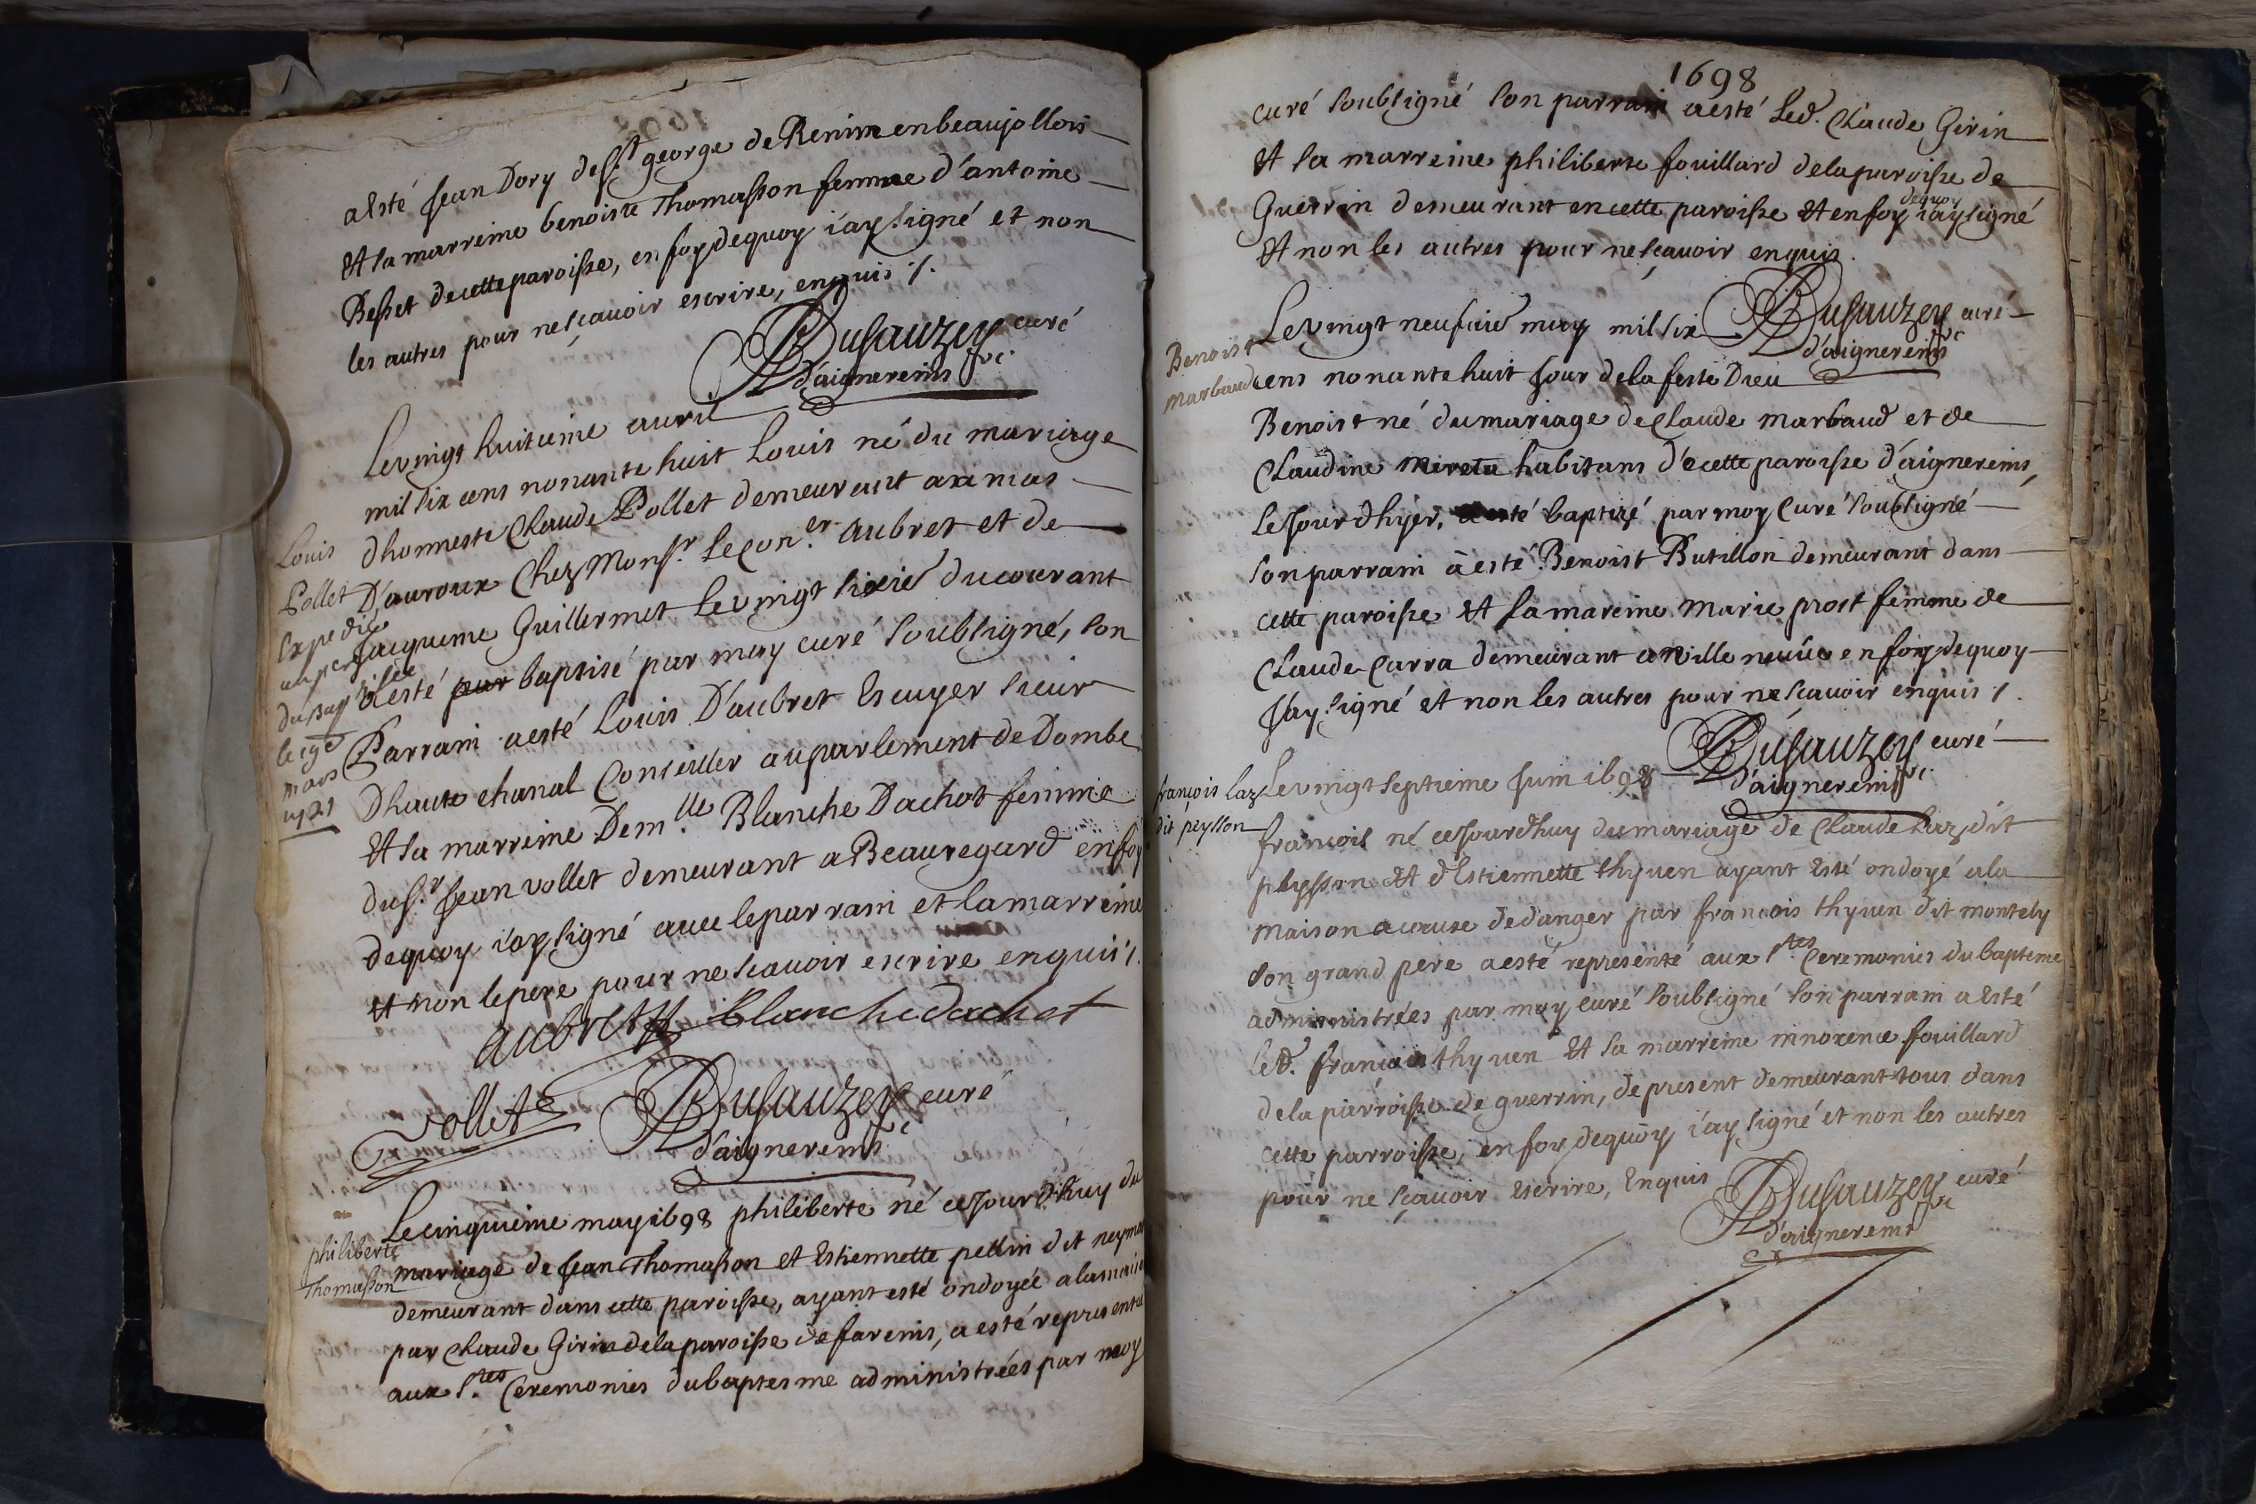 a esté Jean Dory de St george de Renim en beaujollois
Et la marreine benoiste Thomasson femme d'antoine
Besset de cette paroisse, en foy de quoy i'ay signé et non
les autres pour ne sçavoir escrire, enquis /.
DuSauzey curé
d'aignereins
Le vingt huitieme avril
mil six cens nonante huit Louis né du mariage
d'honneste Claude Pollet demeurant au mas
Louis
Pollet
D'auroux Chez Monsr. le Coner. aubret et de
Jacqueme Guillermet le vingt sixie du courant
expedie
a esté baptisé par moy curé soubsigné, son
du
le 19e
mars
1721
Parrain a esté Louis D'aubret Escuyer sieur
d'haute chanal Conseiller au parlement de Dombe
Et la marreine Demlle. Blanche Dachot femme
du sr. Jean vollet demeurant a Beauregard en foy
de quoy i'ay signé avec le parrain et la marreine
et non le pere pour ne scavoir escrire enquis /.
aubret Blanche dachot
vollet DuSauzey curé
d'aignereins
philiberte
Thomasson
Le cinquieme may 1698 philiberte né ce jourd'huy du
mariage de Jean Thomasson et Estiennette pellin dit
demeurant dans cette paroisse, ayant esté ondoyée a la maison
par Claude Girin de la paroisse de farenis, a esté representée
aux stes Ceremonies du baptesme administrées par moy
1698
curé soubsigné son parrain a esté led. Claude Girin
et la marreine philiberte fouillard de la paroisse de
Guerrin demeurant en cette paroisse et en foy de quoy i'ay signé
Et non les autres pour ne sçavoir enquis.
DuSauzey curé
d'aignereins
Benoist
Marbaud
Le vingt neufvie may mil six
cens nonante huit jour de la feste Dieu
Benoist né du mariage de Claude Marbaud et de
Claudine habitans de cette paroisse d'aignereins,
le jour d'hyer, a esté baptizé par moy Curé soubsigné
son parrain a esté Benoist Butillon demeurant dans
cette paroisse Et la mareine Marie prost femme de
Claude Carra demeurant a ville neuve en foy de quoy
J'ay signé et non les autres pour ne sçavoir enquis /.
DuSauzey curé
d'aignereins
françois Laz
dit peysson
Le vingt septieme Juin 1698
francois né ce jourd'huy du mariage de Claude Laz dit
peysson Et d'Estiennette thyven ayant esté ondoyé a la
maison a cause de danger par francois thyven dit montely
son grand pere a esté representé aux stes Ceremonies du bapteme
administrées par moy curé soubsigné son parrain a esté
led. francois thyven Et la marreine innoxence fouillard
de la parroisse de guerrin, de present demeurant tous dans
cette parroisse, en foy de quoy i'ay signé et non les autres
pour ne sçavoir Escrire, Enquis
DuSauzey curé
d'aignereins